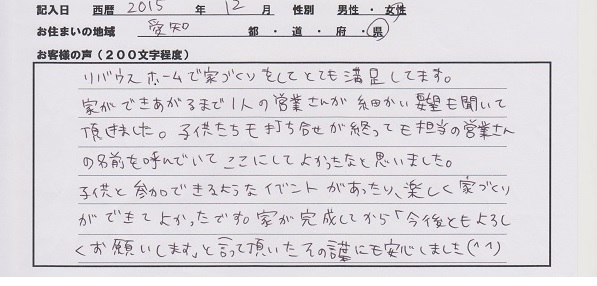 記入日　西暦　2015　年　12　月　性別　男性・女性
お住まいの地域　愛知　都・道・府・県
お客様の声（２００文字程度）
リバウスホームで家づくりをしてとても満足してます。
家ができあがるまで1人の営業さんが細かい要望も聞いて
頂きました。子供たちも打ち合せが終っても担当の営業さん
の名前を呼んでいてここにしてよかったなと思いました。
子供と参加できるようなイベントがあったり、楽しく家づくり
ができてよかったです。家が完成してから「今後ともよろし
くお願いします」と言って頂いたその謹にも安心しました(^^)